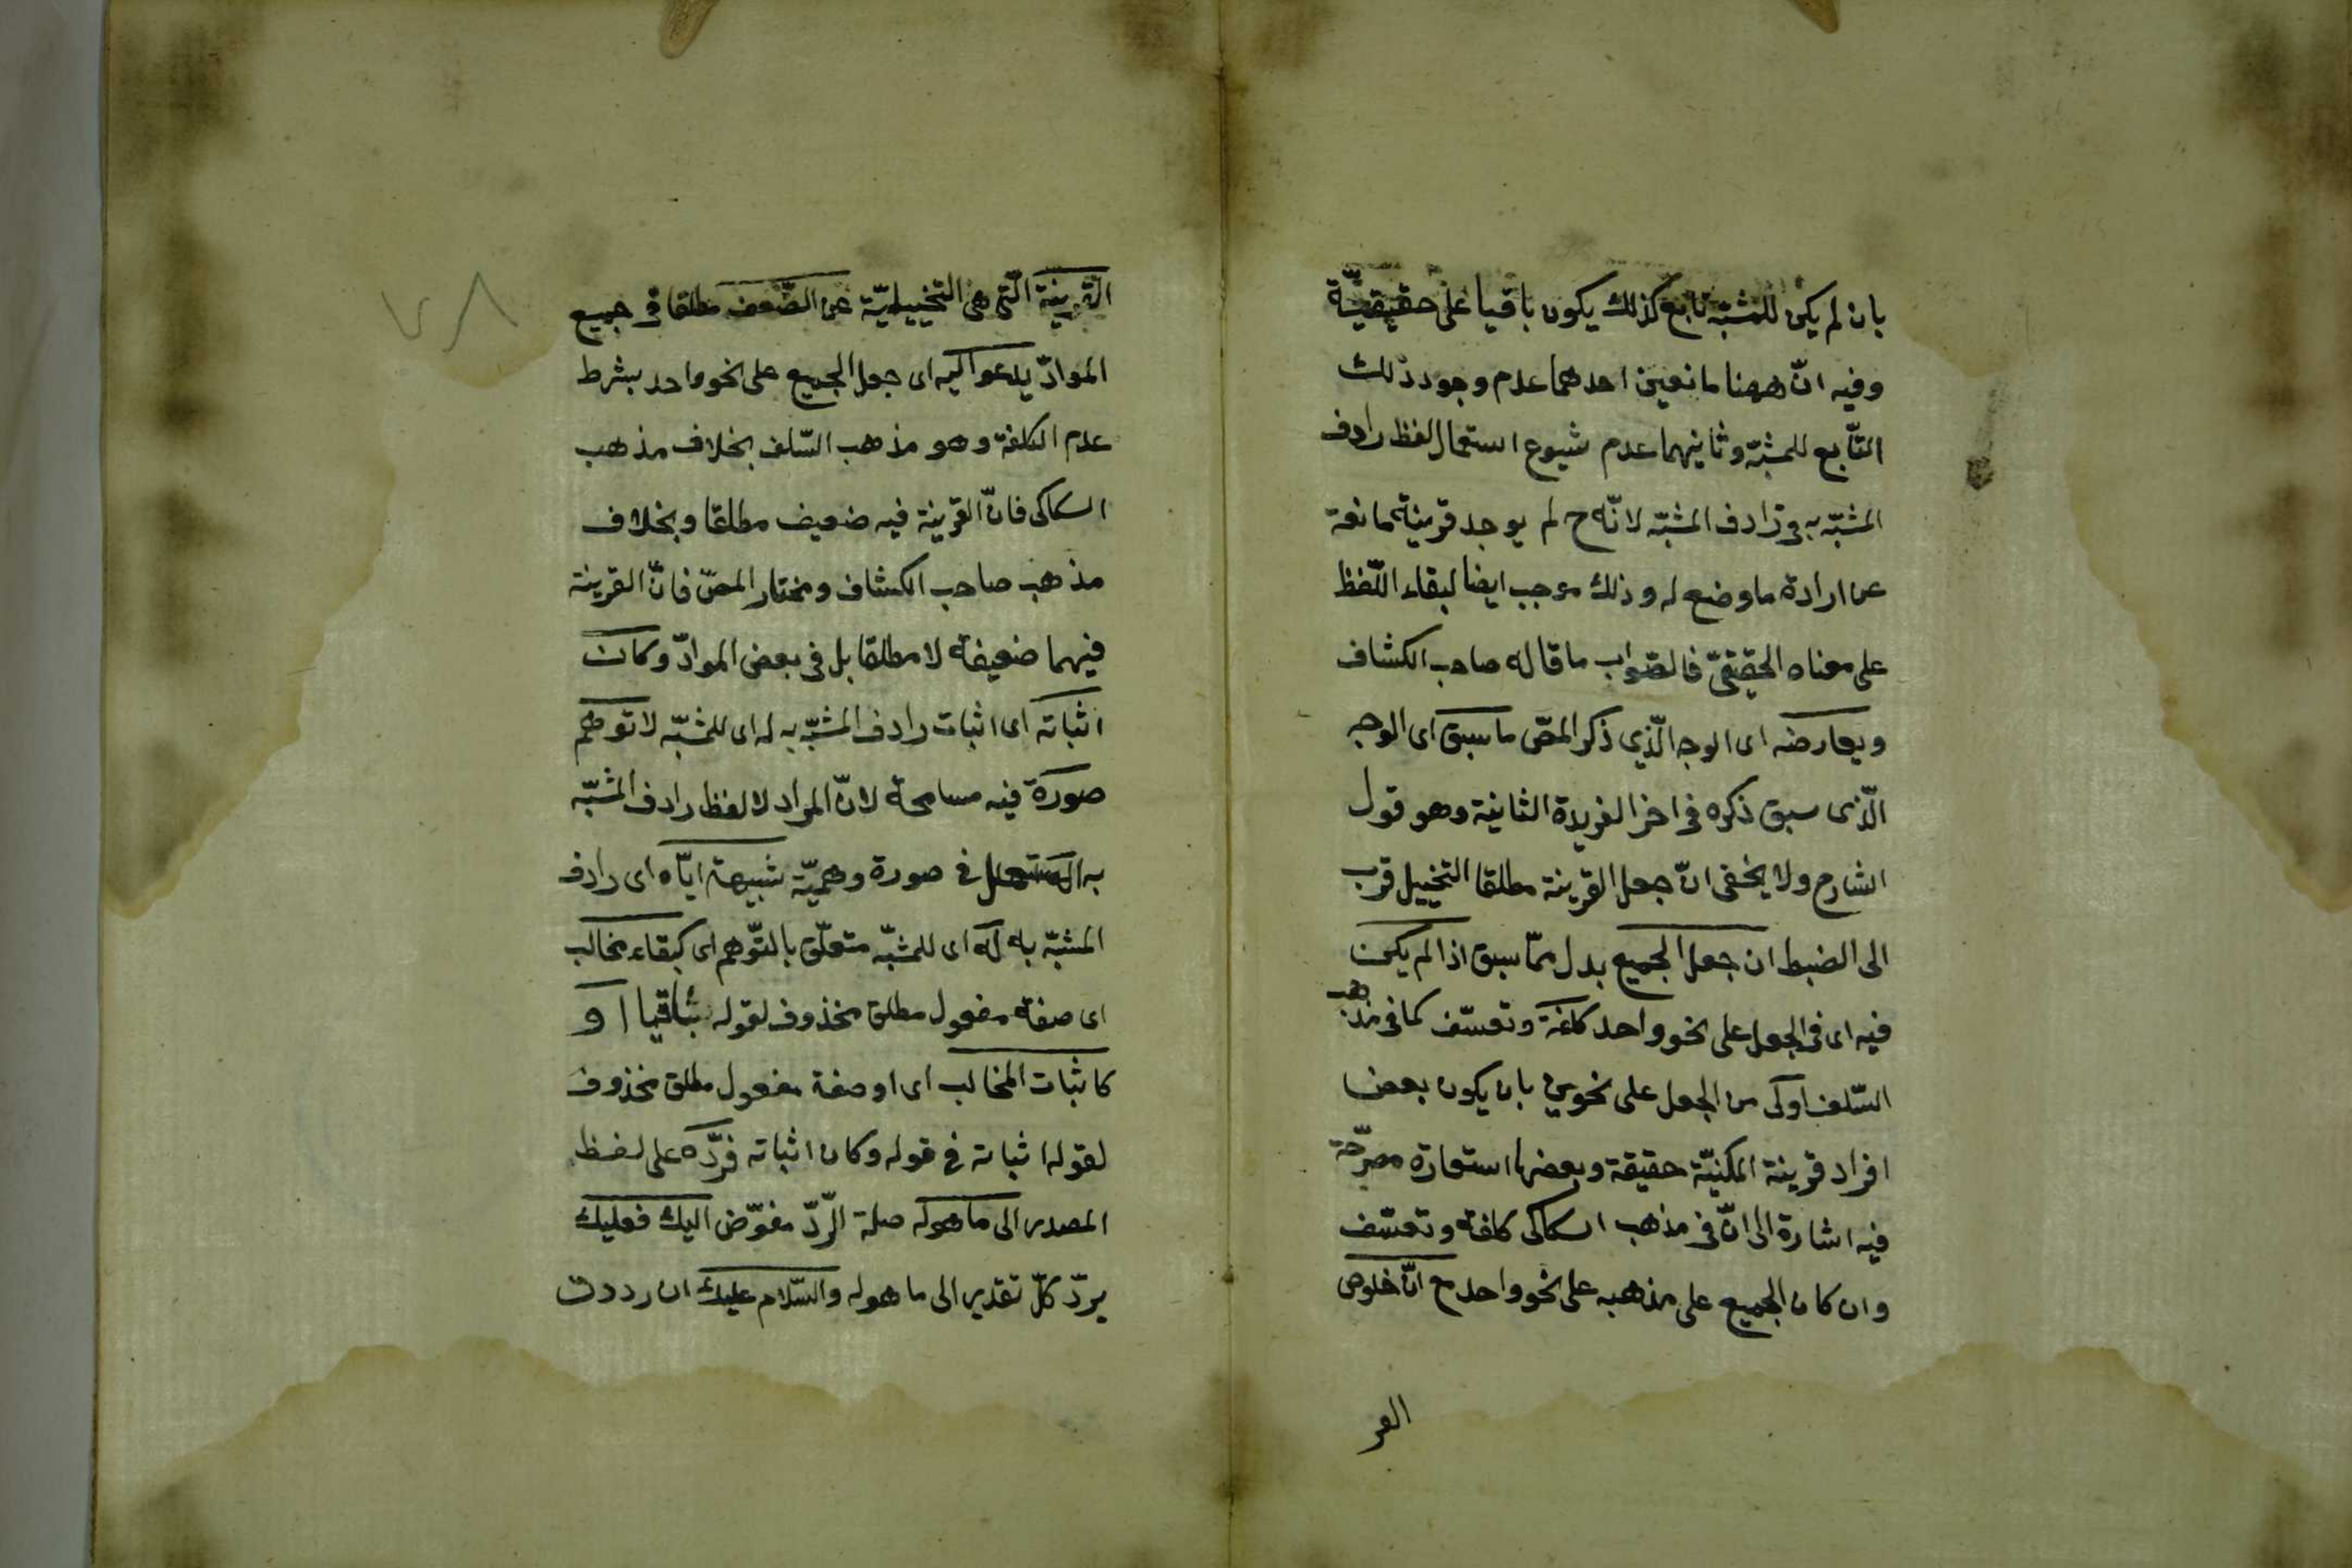 بان لم يكن للمشبّه تابع كذلك يكون باقيا على حقيقيّة
وفيه انّ ههنا مانعين احدهما عدم وجود ذلك
التّابع للمشبّه وثانيهما عدم شيوع استعمال لفظ رادف
المشبّه به فى رادف المشبّه لانّه ح لم يوجد قرينة مانعة
عن ارادة ما وضع له وذلك موجب ايضا لبقاء اللّفظ
على معناه الحقيقىّ فالصّواب ما قاله صاحب الكشاف
ويعارضه اى الوجه الّذي ذكر المص ما سبق اى الوجه
الّذى سبق ذكره فى اخر الفريدة الثانية وهو قول
الشارح ولا يخفى انّ جعل القرينة مطلقا التخييل قرب
الى الضبط ان جعل الجميع بدل ممّا سبق اذا لم يكن
فيه اى فى الجعل على نحو واحد كلفة وتعسّف كما فى مذهب
السّلف اولى من الجعل على نحوين بان يكون بعض
افراد قرينة المكنيّة حقيقة وبعضها استعارة مصرّحة
فيه اشارة الى انّ فى مذهب السكاكى كلفة وتعسّف
وان كان الجميع على مذهبه على نحو واحد ح انّ خلوص
القر
٧٨
القرينة الّتى هى التخييليّة عن الضّعف مطلقا فى جميع
الموادّ يدعو اليه اى جعل الجميع على نحو واحد بشرط
عدم الكلفة وهو مذهب السّلف بخلاف مذهب
السكاكى فانّ القرينة فيه ضعيف مطلقا وبخلاف
مذهب صاحب الكشاف ومختار المص فانّ القرينة
فيهما ضعيفة لا مطلقا بل فى بعض الموادّ وكان
اثباته اى اثبات رادف المشبّه به له اى للمشبّه لا توهم
صورة فيه مسامحة لانّ المراد لا لفظ رادف المشبّه
به المستعمل فى صورة وهميّة شبيهة ايّاه اى رادف
المشبّه به له اى للمشبّه متعلّق بالتّوهم اى كبقاء مخالب
اى صفة مفعول مطلق محذوف لقوله باقيا او
كاثبات المخالب اى او صفة مفعول مطلق محذوف
لقوله اثباته فى قوله وكان اثباته فردّه على لفظ
المصدر الى ما هو له صلة الرّدّ مفوّض اليك فعليك
بردّ كلّ تقدير الى ما هو له والسّلام عليك ان رددت